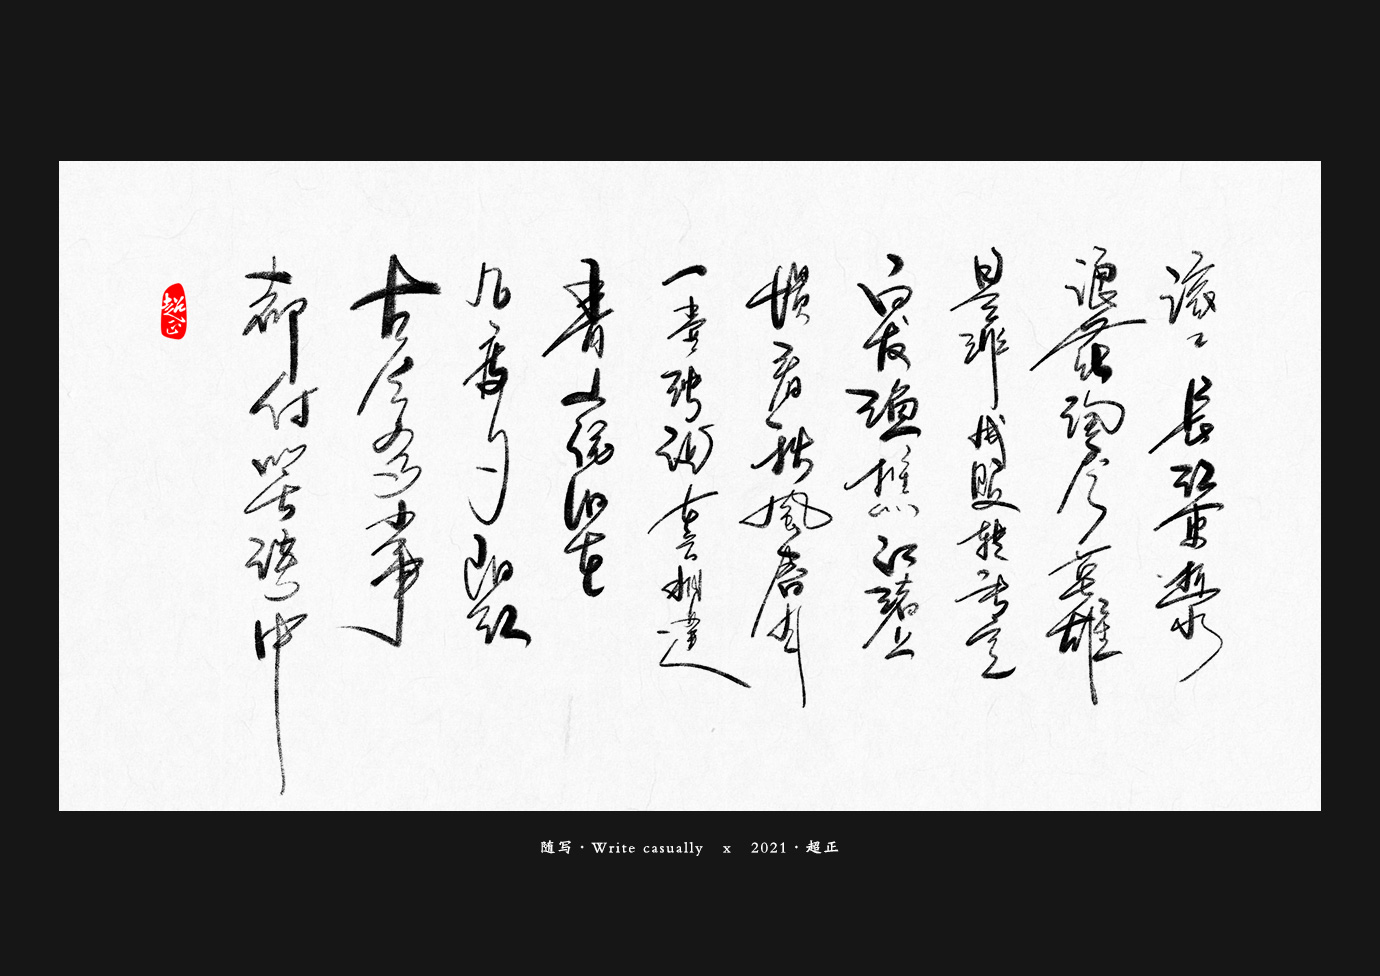 滚滚长江东逝水
浪花淘尽英雄
是非成败转头空
白发渔樵江渚上
惯看秋風春月
一壶浊酒喜相逢
青山依旧在
几度夕阳红
古今多少事
都付笑谈中
超正
随写·Write casually x 2021·超正